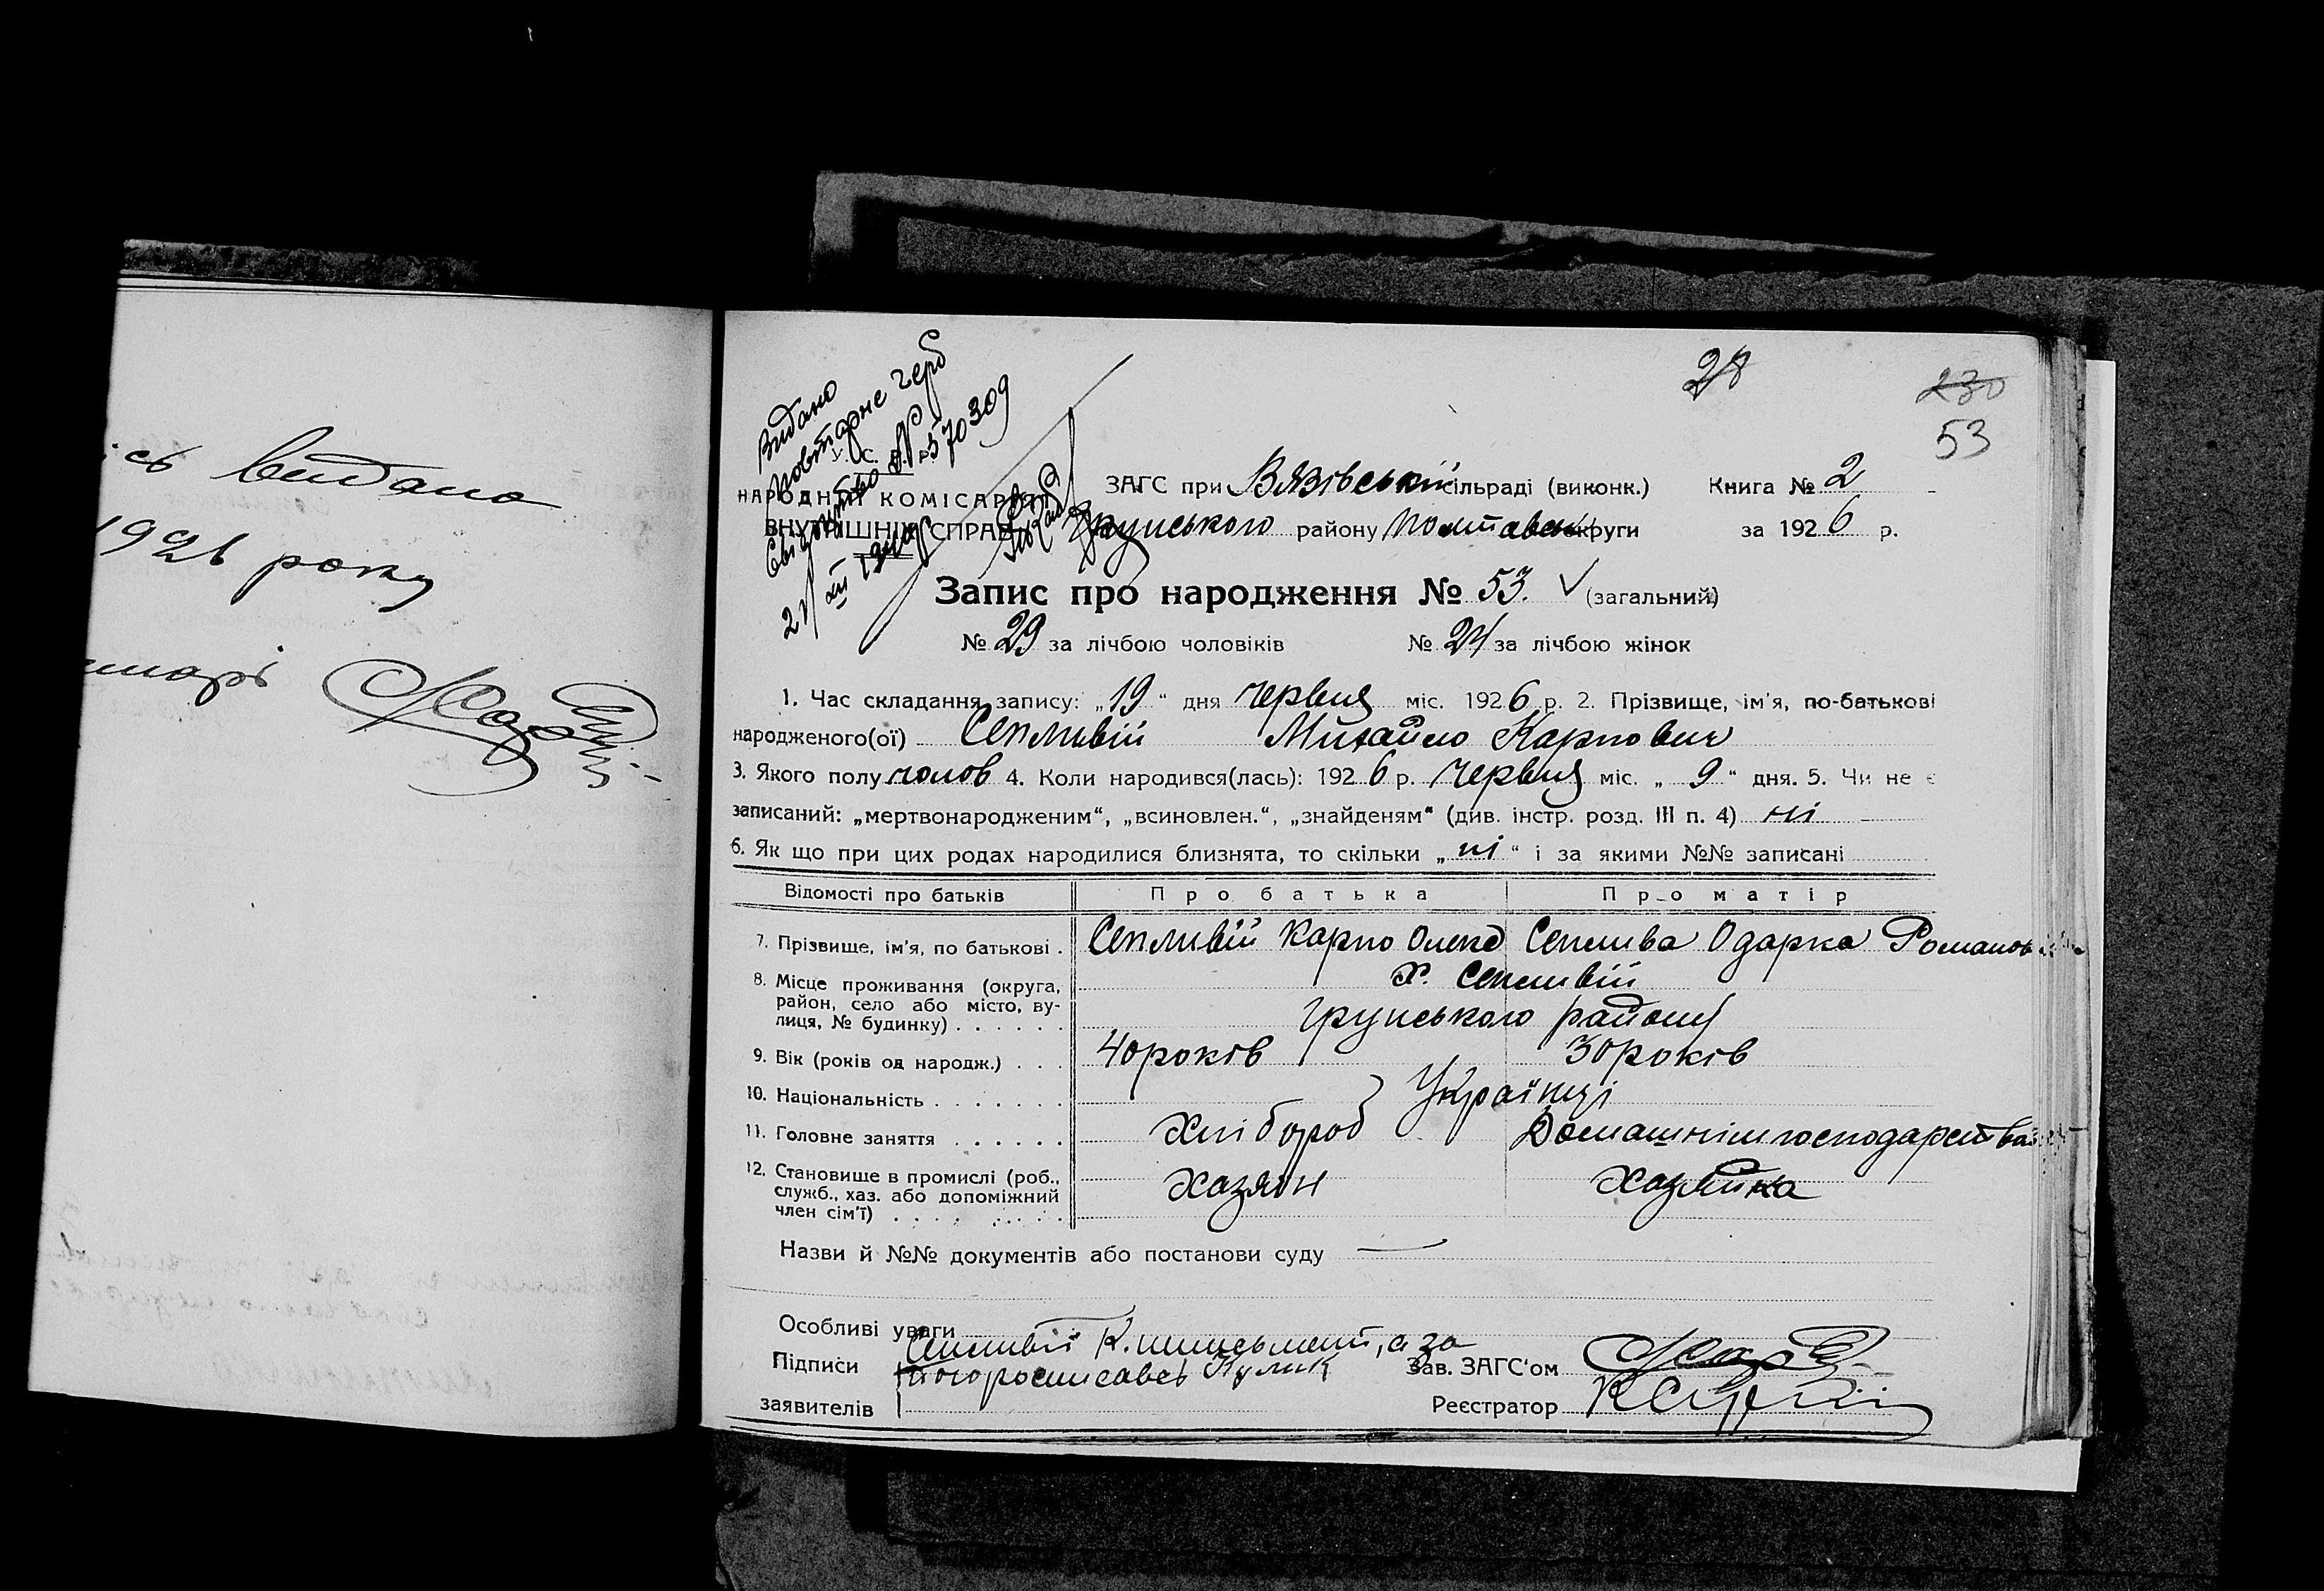 видано
1926 року
28
230
53
Видано
повторне герб
У. С. Р. Р.
свідоцтво № 570309
НАРОДНІЙ КОМІСАРІЯТ
ВНУТРІШНІХ СПРАВ
ЗАГС при Вязівській сільраді (виконк.) Книга № 2
Грунського району Полтавськ округи за 1926 р.
Запис про народження № 53. (загальний)
№ 29 за лічбою чоловіків № 24 за лічбою жінок
1. Час складання запису: „19“ дня червня міс. 1926 р. 2. Прізвище, ім'я, по-батькові
народженого(ої) Сепливій Михайло Карпович
3. Якого полу чолов 4. Коли народився(лась): 1926 р. червня міс. „9“ дня. 5. Чи не є
записаний: „мертвонародженим“, „всиновлен.“, „знайденям“ (див. інстр. розд. III п. 4) ні
6. Як що при цих родах народилися близнята, то скільки „ні“ і за якими №№ записані
Відомості про батьків Про батька Про матір
7. Прізвище, ім'я, по батькові . Сепливій Карпо Олекс Сеплива Одарка Романов
8. Місце проживання (округа, х. Сепливій
район, село або місто, ву-
лиця, № будинку) . . . . . . Грунського району
9. Вік (років од народж.) . . . 40 років 30 років
10. Національність . . . . . . . Українці
11. Головне заняття . . . . . . Хлібороб Домашнім господарства
12. Становище в промислі (роб., Хазяїн Хазяйка
служб., хаз. або допоміжний
член сім'ї) . . . . . . . . .
Назви й №№ документів або постанови суду —
Особливі уваги
Підписи Сепливій К. неписьмен, а за
його росписавсь Кулик Зав. ЗАГС'ом
заявителів Реєстратор